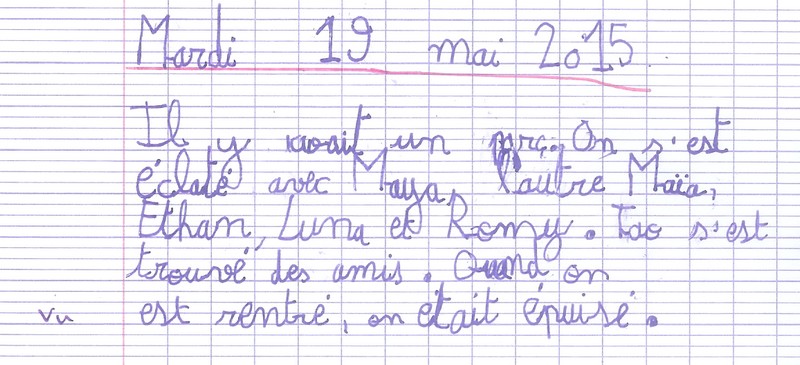 Mardi 19 mai 2015
Il y avait un parc. On s'est
éclaté avec Maya, l'autre Maïa,
Ethan, Luna et Romy. Tao s'est
trouvé des amis. Quand on
vu est rentré, on était épuisé.